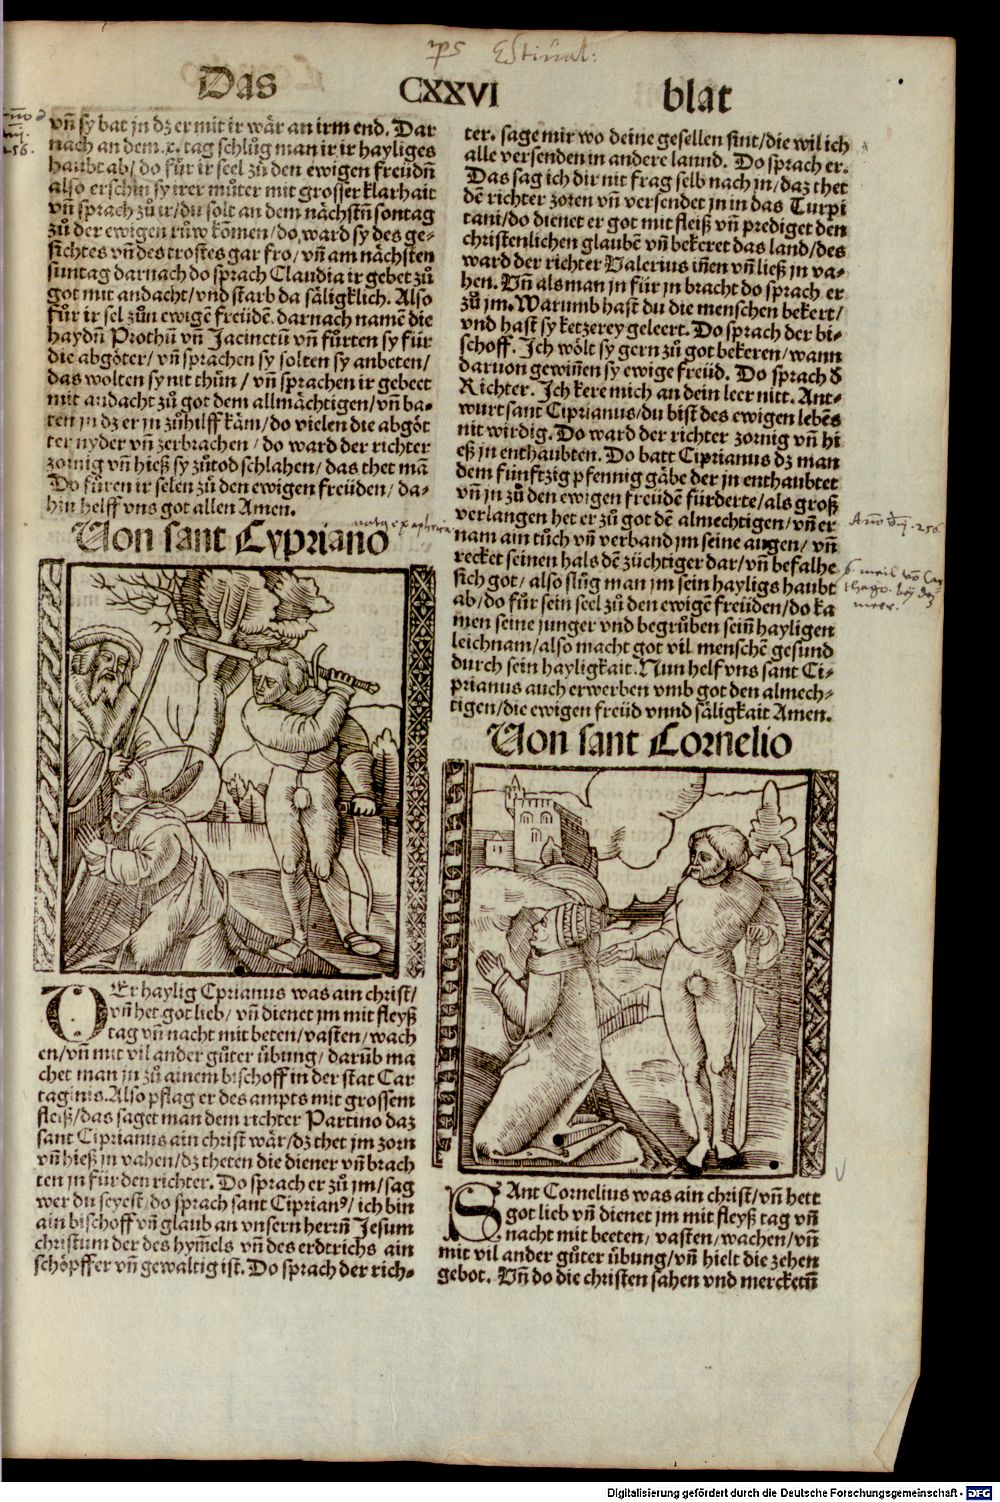 Estiual:
Das CXXVI blat
vn̄ sy bat jn dz er mit ir wär an irm end. Dar
nach an dem .x. tag schlůg man ir ir hayliges
haubt ab/ do fůr ir seel zů den ewigen freüdn̄
also erschin sy irer můter mit grosser klarhait
vn̄ sprach zů ir/ du solt an dem nächstn̄ sontag
zů der ewigen růw kōmen/ do ward sy des ge⸗
sichtes vn̄ des trostes gar fro/ vn̄ am nächsten
suntag darnach do sprach Claudia ir gebet zů
got mit andacht/ vnd starb da säligklich. Also
fůr ir sel zůn ewigē freüdē. darnach namē die
haydn̄ Prothū vn̄ Jacinctū vn̄ fůrten sy für
die abgöter/ vn̄ sprachen sy solten sy anbeten/
das wolten sy nit thůn/ vn̄ sprachen ir gebeet
mit andacht zů got dem allmächtigen/ vn̄ ba⸗
ten jn dz er jn zůhilff käm/ do vielen die abgöt
ter nyder vn̄ zerbrachen/ do ward der richter
zornig vn̄ hieß sy zůtod schlahen/ das thet mā
Do fůren ir selen zů den ewigen freüden/ da⸗
hin helff vns got allen Amen.
Von sant Cypriano
DEr haylig Cprianus was ain christ/
vn̄ het got lieb/ vn̄ dienet jm mit fleyß
tag vn̄ nacht mit beten/ vasten/ wach
en/ vn̄ mit vil ander gůter übung/ darūb ma
chet man jn zů ainem bischoff in der stat Car
taginis. Also pflag er des ampts mit grossem
fleiß/ das saget man dem richter Partino daz
sant Ciprianus ain christ wär/ dz thet jm zorn
vn̄ hieß jn vahen/ dz theten die diener vn̄ brach
ten jn für den richter. Do sprach er zů jm/ sag
wer du seyest/ do sprach sant Ciprianꝰ/ ich bin
ain bischoff vn̄ glaub an vnsern herrn̄ Jesum
christum der des hym̄els vn̄ des erdtrichs ain
schöpffer vn̄ gewaltig ist. Do sprach der rich⸗
ter. sage mir wo deine gesellen sint/ die wil ich
alle versenden in andere lannd. Do sprach er.
Das sag ich dir nit frag selb nach jn/ daz thet
dē richter zoren vn̄ versendet jn in das Turpi
tani/ do dienet er got mit fleiß vn̄ prediget den
christenlichen glaubē vn̄ bekeret das land/ des
ward der richter Valerius in̄en vn̄ ließ jn va⸗
hen. Vn̄ als man jn für jn bracht do sprach er
zů jm. Warumb hast du die menschen bekert/
vnd hast sy ketzerey geleert. Do sprach der bi⸗
schoff. Ich wölt sy gern zů got bekeren/ wann
daruon gewin̄en sy ewige freüd. Do sprach d̄
Richter. Ich kere mich an dein leer nitt. Ant⸗
wurt sant Ciprianus/ du bist des ewigen lebēs
nit wirdig. Do ward der richter zornig vn̄ hi
eß jn enthaubten. Do batt Ciprianus dz man
dem fünfftzig pfennig gäbe der jn enthaubtet
vn̄ jn zů den ewigen freüdē fürderte/ als groß
verlangen het er zů got dē almechtigen/ vn̄ er
nam ain tůch vn̄ verband jm seine augen/ vn̄
recket seinen hals dē züchtiger dar/ vn̄ befalhe
sich got/ also slůg man jm sein hayligs haubt
ab/ do fůr sein seel zů den ewigē freüden/ do ka
men seine junger vnd begrůben sein̄ hayligen
leichnam/ also macht got vil menschē gesund
durch sein hayligkait. Nun helf vns sant Ci⸗
prianus auch erwerben vmb got den almech⸗
tigen/ die ewigen freüd vnnd säligkait Amen.
Anno 256
Von sant Cornelio
SAnt Cornelius was ain christ/ vn̄ hett
got lieb vn̄ dienet jm mit fleyß tag vn̄
nacht mit beeten/ vasten/ wachen/ vn̄
mit vil ander gůter übung/ vn̄ hielt die zehen
gebot. Vn̄ do die christen sahen vnd mercketn̄
Digitalisierung gefördert durch die Deutsche Forschungsgemeinschaft - DFG